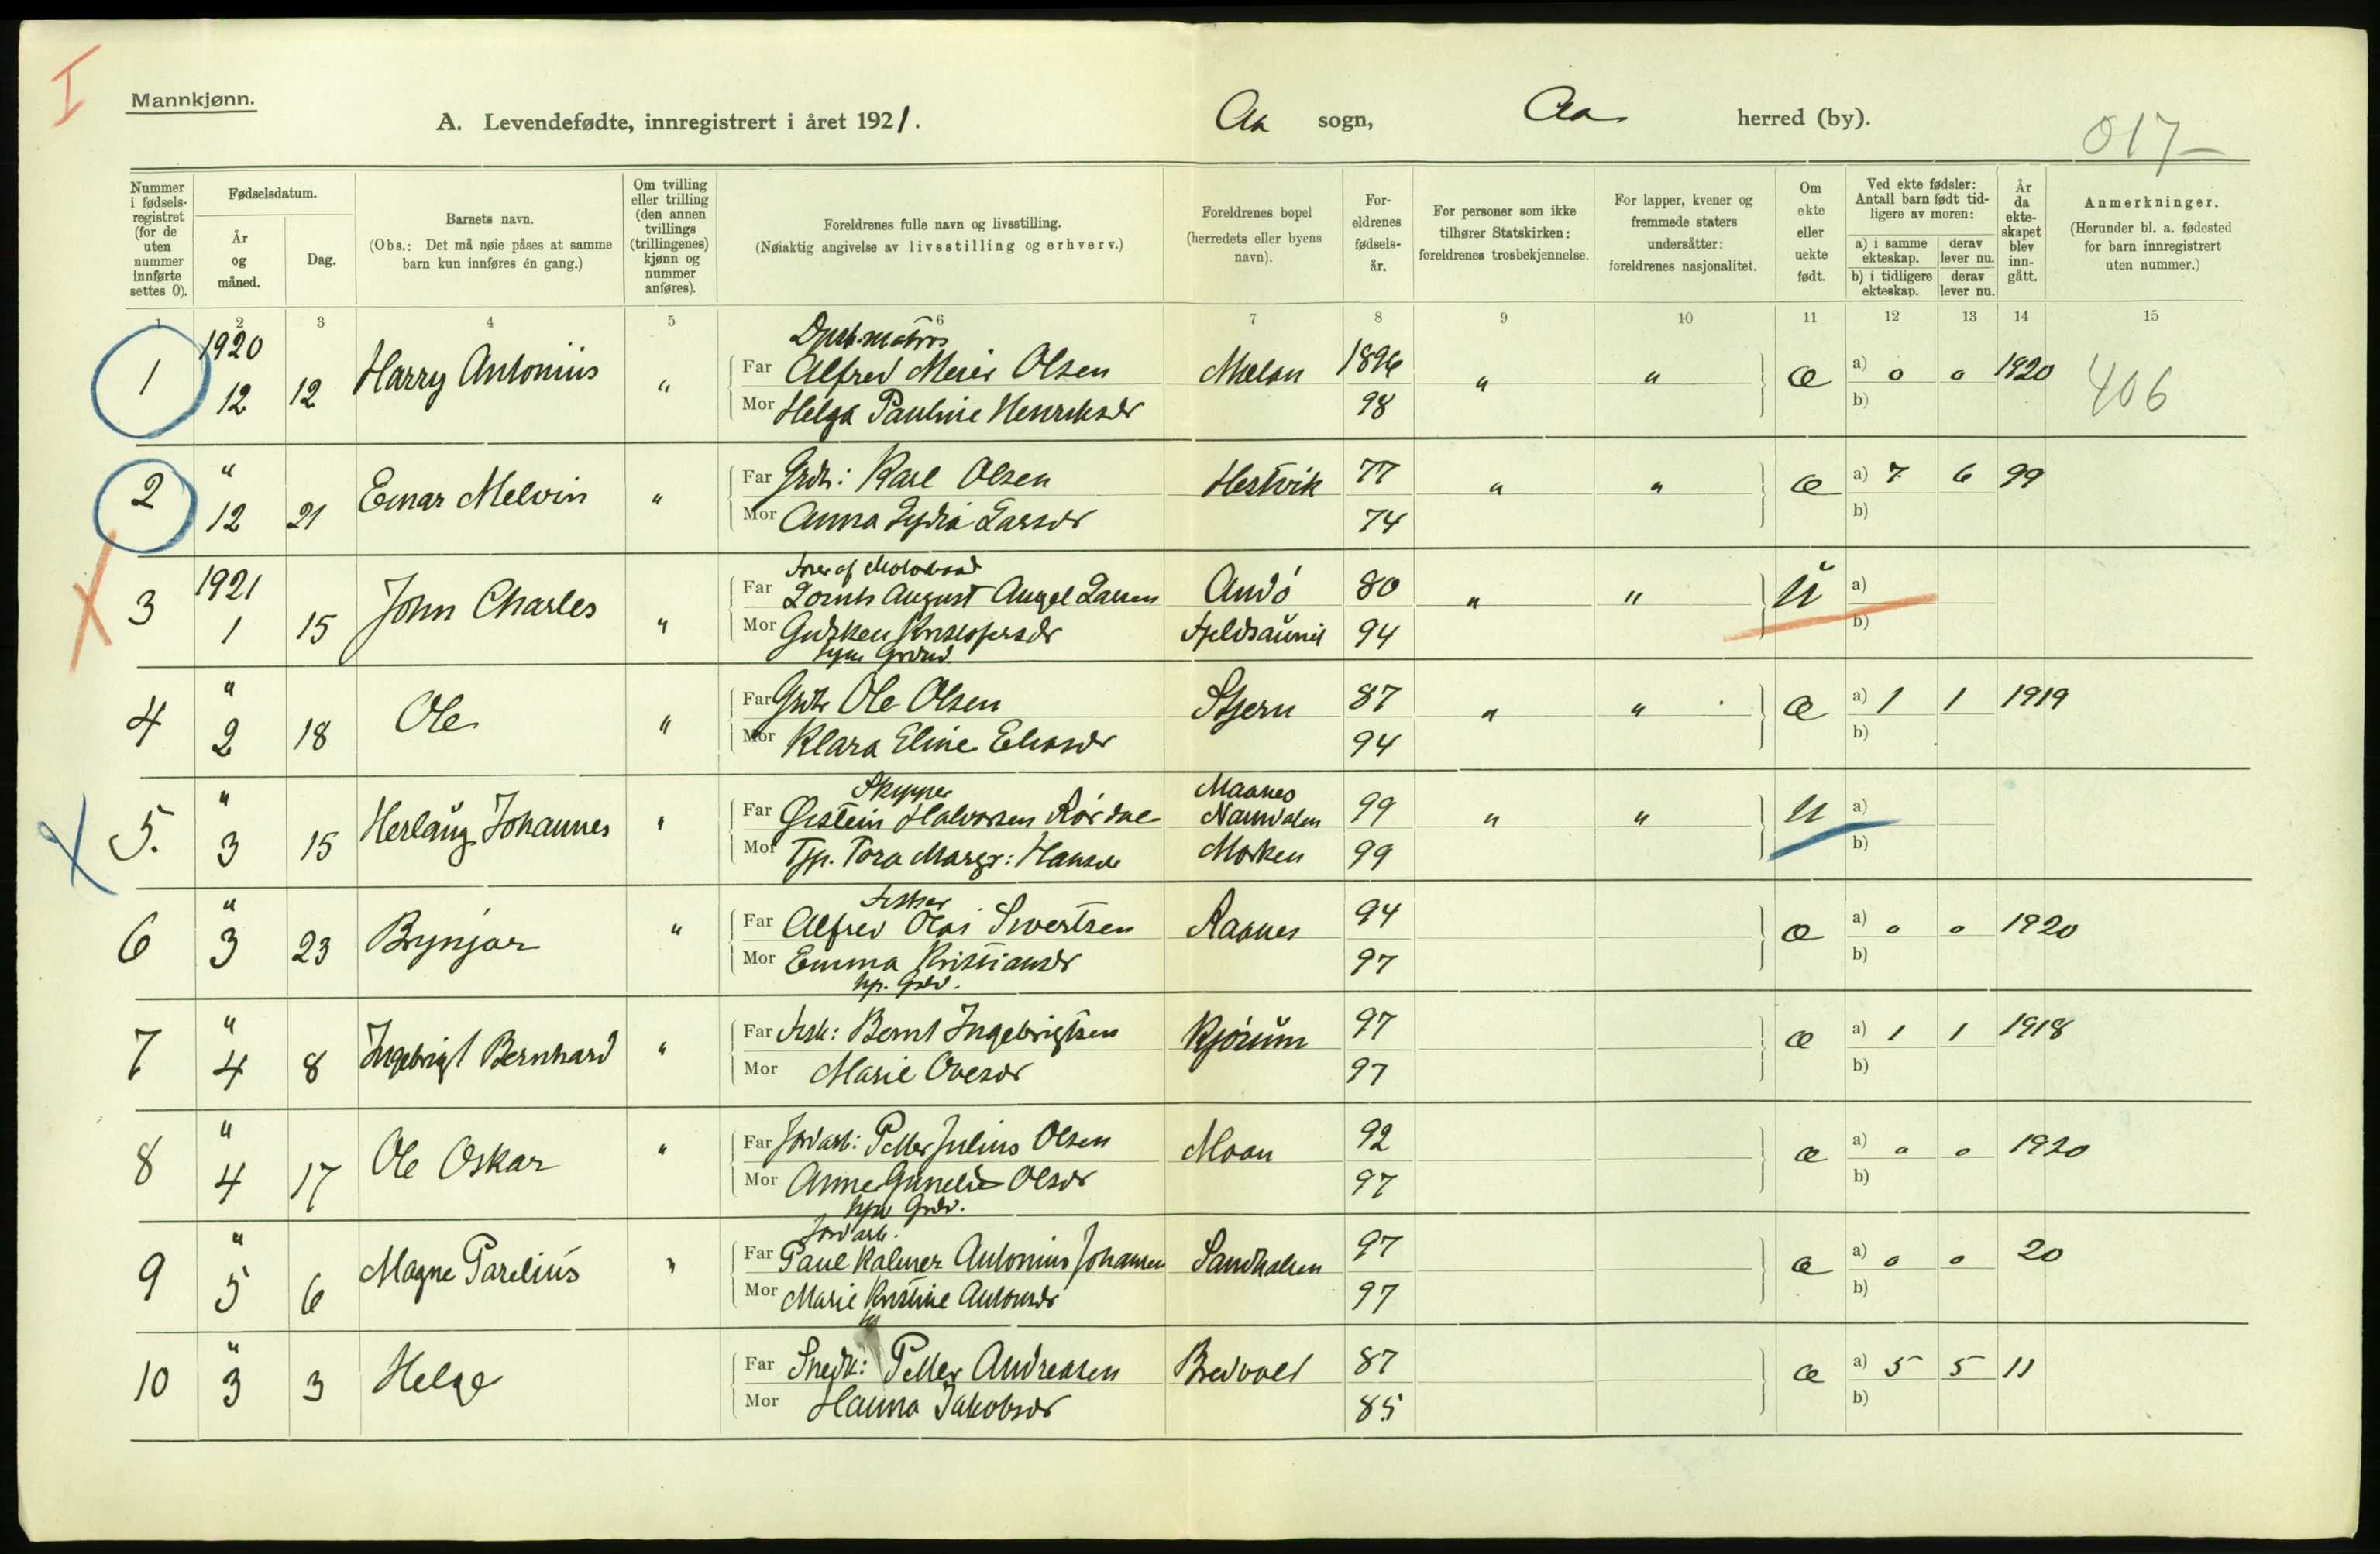 I
Mannkjønn.
A. Levendefødte, innregistrert i året 1921.
Aa sogn, Aa herred (by).
017
Nummer i fødselsregistret (for de uten nummer innførte settes 0).
Fødselsdatum.
År og måned.
Dag.
Barnets navn.
(Obs.: Det må nøie påses at samme barn kun innføres én gang.)
Om tvilling eller trilling (den annen tvillings (trillingenes) kjønn og nummer anføres).
Foreldrenes fulle navn og livsstilling.
(Nøiaktig angivelse av livsstilling og erhverv.)
Foreldrenes bopel (herredets eller byens navn).
Foreldrenes fødselsår.
For personer som ikke tilhører Statskirken: foreldrenes trosbekjennelse.
For lapper, kvener og fremmede staters undersåtter: foreldrenes nasjonalitet.
Om ekte eller uekte født.
Ved ekte fødsler: Antall barn født tidligere av moren:
a) i samme ekteskap. derav lever nu.
b) i tidligere ekteskap. derav lever nu.
År da ekteskapet blev inngått.
Anmerkninger.
(Herunder bl. a. fødested for barn innregistrert uten nummer.)
1 2 3 4 5 6 7 8 9 10 11 12 13 14 15
1920
1 12 12 Harry Antonius " Far Alfred Meier Olsen Melan 1896 " " æ a) 0 0 1920 406
Mor Helga Pauline Henriksdr 98 b)
2 " 12 21 Einar Melvin " Far Grdr: Karl Olsen Hestvik 77 " " æ a) 7 6 99
Mor Anna Lydia Larsdr 74 b)
1921
3 1 15 John Charles " Far August Angel Larsen Andö 80 " " U a)
Mor Kristofersdr 94 b)
4 " 2 18 Ole " Far Grdr Ole Olsen Stjern 87 " " æ a) 1 1 1919
Mor Klara Eline Eliasdr 94 b)
Skipper
5. " 3 15 Herlaug Johannes " Far Øistein Halvorsen Rördal Namdalen 99 " " U a)
Mor Tjp. Tora Margr: Hansdr Morken 99 b)
Fisker
6 " 3 23 Brynjar " Far Alfred Olai Sivertsen Raanes 94 æ a) 0 0 1920
Mor Emma Kristiansdr 97 b)
7 " 4 8 Ingebrigt Bernhard " Far Fisk: Bernt Ingebrigtsen Kjörum 97 æ a) 1 1 1918
Mor Marie Ovesdr 97 b)
8 " 4 17 Ole Oskar " Far Jordarb: Petter Julius Olsen Moan 92 æ a) 0 0 1920
Mor Anne Gunelie Olsdr 97 b)
Jordarb.
9 " 5 6 Magne Parelius " Far Paul Kalmer Antonius Johansen 97 æ a) 0 0 20
Mor Marie Kristine Antonsdr 97 b)
10 " 3 3 Helge Far Snedk: Petter Andreasen Bredvold 87 æ a) 5 5 11
Mor Hanna Jakobsdr 85 b)